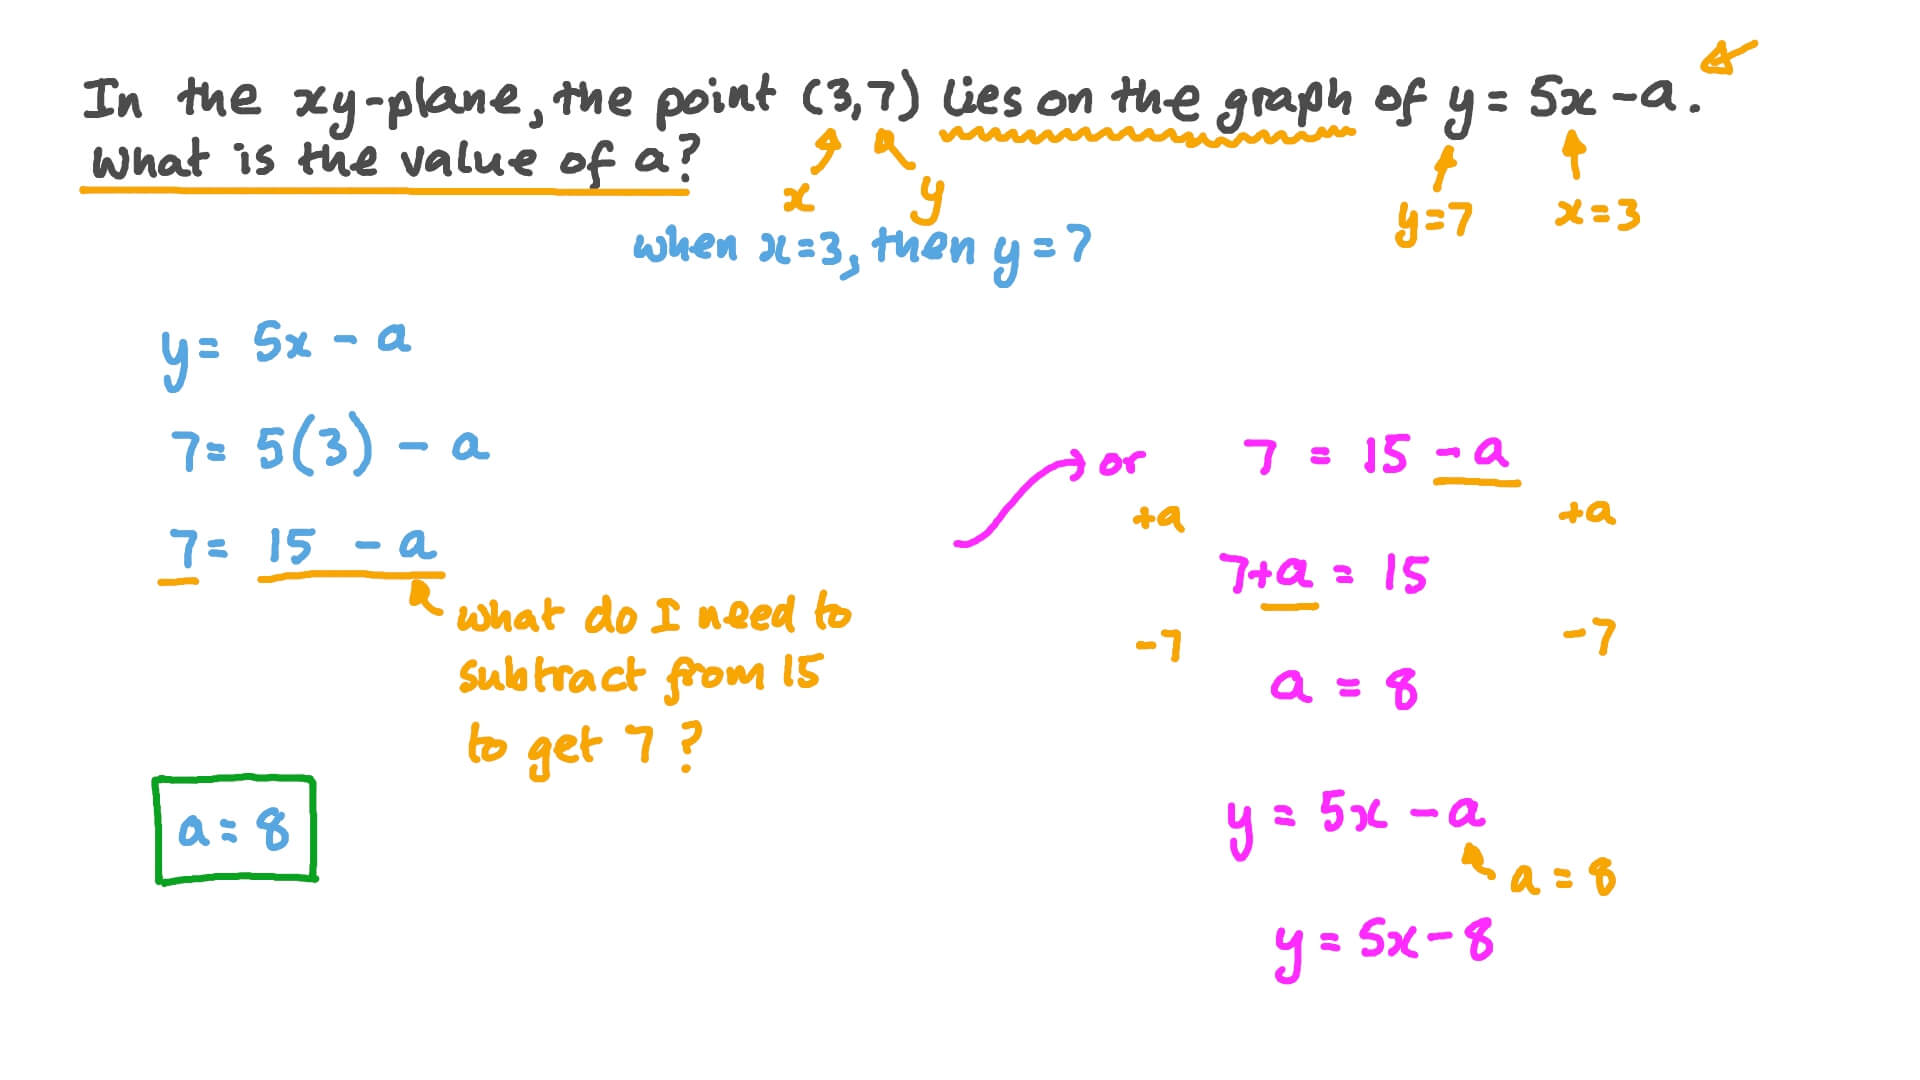 In the xy-plane, the point (3,7) lies on the graph of y = 5x - a.
What is the value of a?
x y
y=7 x=3
when x=3, then y=7
y= 5x - a
7= 5(3) - a
7= 15 - a
what do I need to
subtract from 15
to get 7?
a=8
or 7 = 15 - a
+a +a
7+a = 15
-7 -7
a = 8
y = 5x - a
a = 8
y = 5x-8